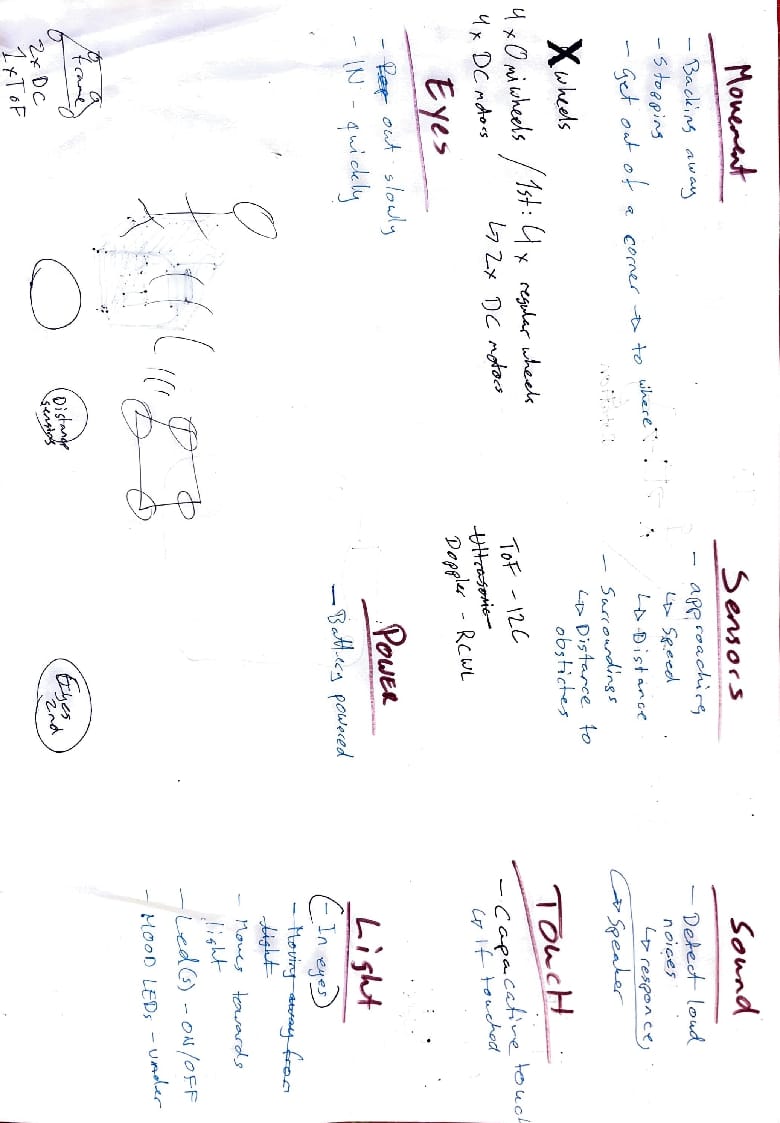 Movement
- Backing away
- Stopping
- Get out of a corner → to where?
X wheels
4x Omiwheels / 1st: 4x regular wheels
4x DC motors ↳ 2x DC motors
Eyes
- Rep out slowly
- IN - quickly
a
frame
2x DC
1x ToF
Distance
sensing
Sensors
- approaching
↳ Speed
↳ Distance
- Surroundings
↳ Distance to
obsticles
ToF - I2C
Ultrasonic
Doppler - RCWL
POWER
- Battery powered
Eyes
2nd
Sound
- Detect loud
noices
↳ responce,
↳ Speaker
ToucH
- Capacative touch
↳ If touched
Light
- In eyes
- Moving away from
light
- Moves towards
light
- Led(s) - ON/OFF
- MOOD LEDs - under